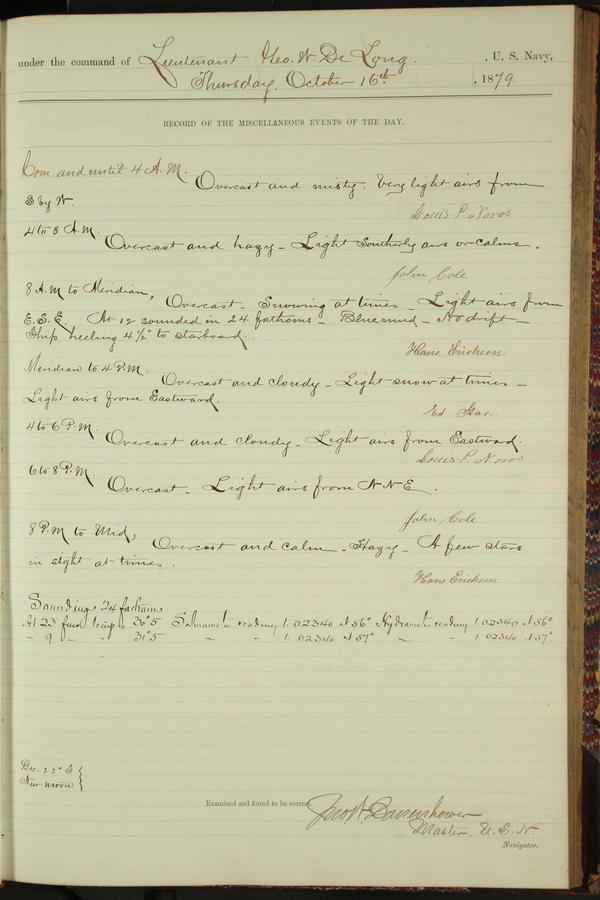 under the command of Lieutenant Geo. W. De Long. , U. S. Navy,
Thursday, October 16th , 1879.
RECORD OF THE MISCELLANEOUS EVENTS OF THE DAY.
Com. and until 4 A.M. Overcast and misty. Very light airs from
S by W.
Louis P. Noros
4 to 8 A.M. Overcast and hazy – Light Southerly airs or calms.
John Cole
8 A.M to Meridian, Overcast – Snowing at times – Light airs from
E.S.E. At 12 sounded in 24 fathoms – Blue mud – No drift –
Ship heeling 4½° to starboard.
Hans Erichsen
Meridian to 4 P.M. Overcast and cloudy – Light snow at times –
Light airs from Eastward.
Ed. Star.
4 to 6 P.M. Overcast and cloudy – Light airs from Eastward.
Louis P. Noros
6 to 8 P.M. Overcast – Light airs from N.N.E.
John Cole
8 P.M to Mid, Overcast and calm – Hazy – A few stars
in sight at times.
Hans Erichsen
Soundings 24 fathoms
At 23 fms temp is 30°5 Salinometer reading 1.02340 at 56° Hydrometer reading 1.02340 at 56°
" 9 " " 31°5 " " 1.02340 at 57° " " 1.02340 at 57°
Dec. 22° E
New moon
Examined and found to be correct,
Jno W. Danenhower
Master, U.S.N.
Navigator.